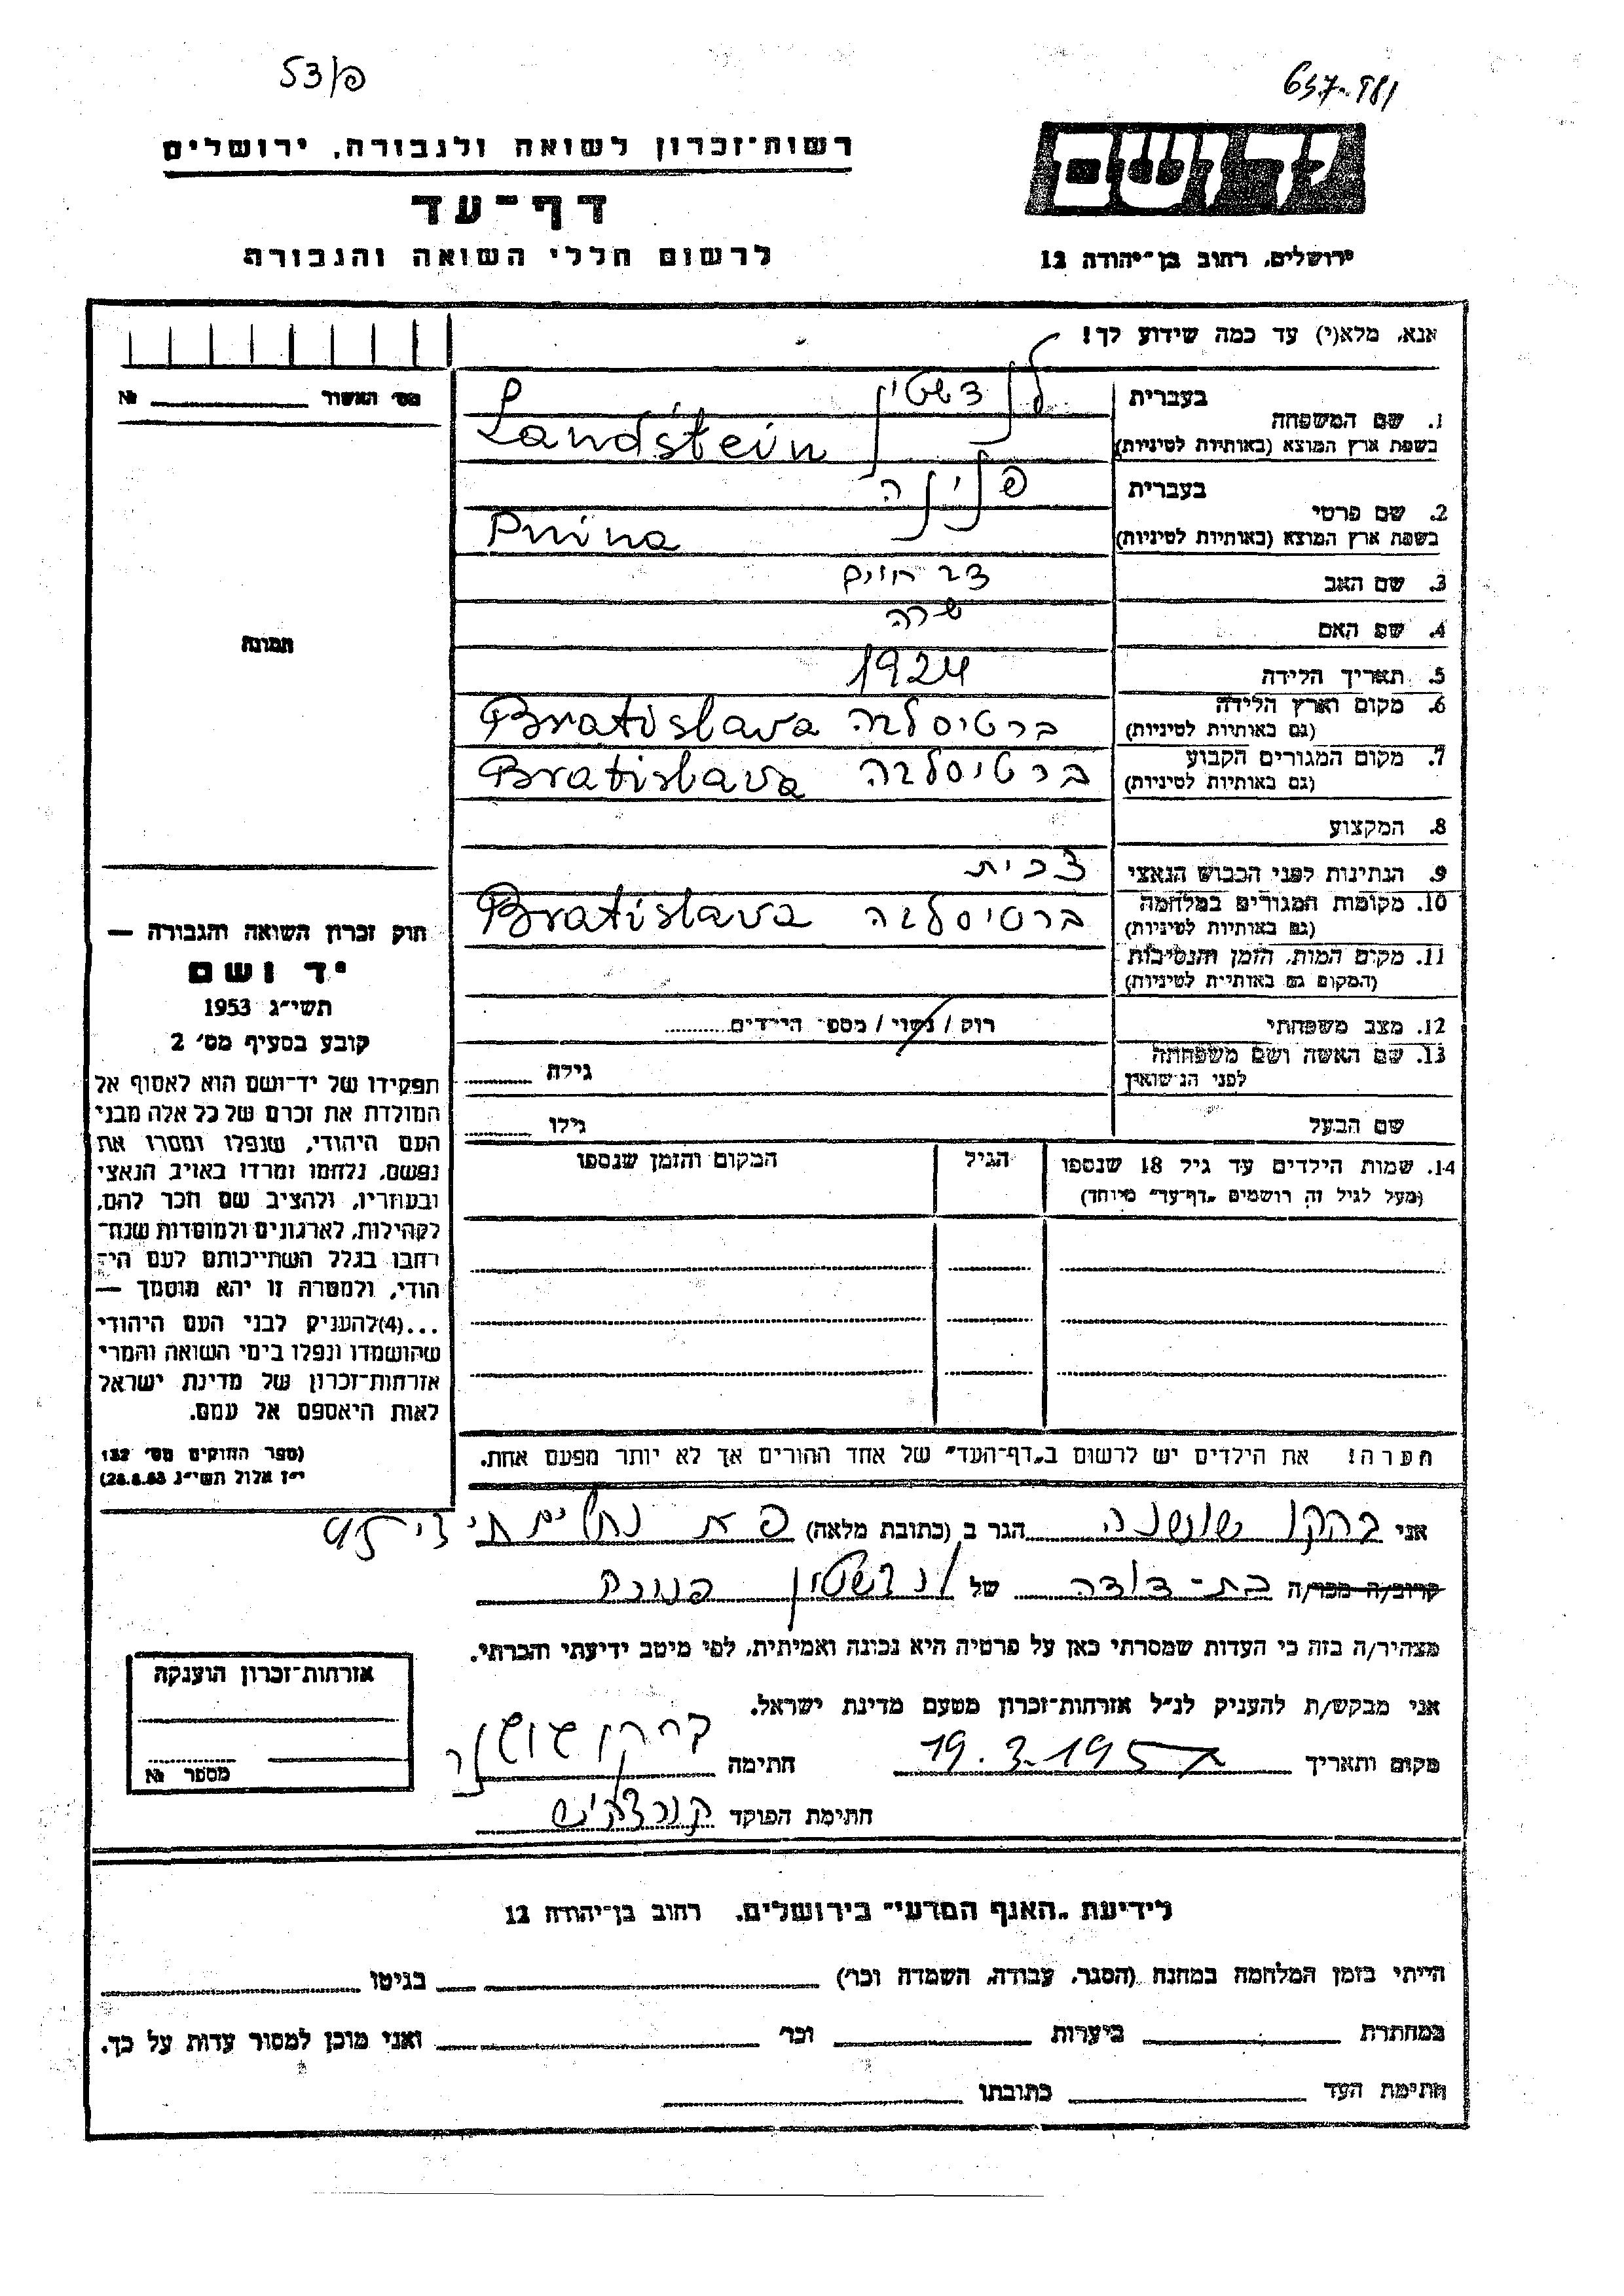 53/פ
637-181
רשות-זכרון לשואה ולגבורה, ירושלים
דף-עד
לרשום חללי השואה והגבורה
יד ושם
ירושלים, רחוב בן-יהודה 12
אנא, מלא(י) עד כמה שידוע לך!
מס׳ האשור № 
1. שם המשפחה
בעברית לנדשטין
בשפת ארץ המוצא (באותיות לטיניות) Landstein
2. שם פרטי
בעברית פנינה
בשפת ארץ המוצא (באותיות לטיניות) Pnina
3. שם האב
4. שם האם שרה
5. תאריך הלידה 1924
6. מקום וארץ הלידה ברטיסלוה Bratislava
(גם באותיות לטיניות)
7. מקום המגורים הקבוע ברטיסלוה Bratislava
(גם באותיות לטיניות)
8. המקצוע
9. הנתינות לפני הכבוש הנאצי צכית
10. מקומות המגורים במלחמה ברטיסלוה Bratislava
(גם באותיות לטיניות)
11. מקום המות, הזמן והנסיבות
(המקום גם באותיות לטיניות)
12. מצב משפחתי רוק / נשוי / מספר הילדים
13. שם האשה ושם משפחתה
לפני הנישואין
גילה
שם הבעל
גילו
14. שמות הילדים עד גיל 18 שנספו
(מעל לגיל זה רושמים „דף-עד״ מיוחד)
הגיל
המקום והזמן שנספו
הערה! את הילדים יש לרשום ב„דף-העד״ של אחד ההורים אך לא יותר מפעם אחת.
תמונה
חוק זכרון השואה והגבורה —
יד ושם
תשי״ג 1953
קובע בסעיף מס׳ 2
תפקידו של יד-ושם הוא לאסוף אל
המולדת את זכרם של כל אלה מבני
העם היהודי, שנפלו ומסרו את
נפשם, נלחמו ומרדו באויב הנאצי
ובעוזריו, ולהציב שם וזכר להם,
לקהילות, לארגונים ולמוסדות שנח-
רבו בגלל השתייכותם לעם הי-
הודי, ולמטרה זו יהא מוסמך —
...(4) להעניק לבני העם היהודי
שהושמדו ונפלו בימי השואה והמרי
אזרחות-זכרון של מדינת ישראל
לאות היאספם אל עמם.
(ספר החוקים מס׳ 132
י״ז אלול תשי״ג 28.8.53)
אני שושנה הגר ב (כתובת מלאה)
קרוב/ה מכר/ה בת-דודה של לנדשטין
מצהיר/ה בזה כי העדות שמסרתי כאן על פרטיה היא נכונה ואמיתית, לפי מיטב ידיעתי והכרתי.
אני מבקש/ת להעניק לנ״ל אזרחות-זכרון מטעם מדינת ישראל.
מקום ותאריך 19.3.195 חתימה שושנה
חתימת הפוקד
אזרחות-זכרון הוענקה
מספר №
לידיעת „האגף המדעי״ בירושלים, רחוב בן-יהודה 12
הייתי בזמן המלחמה במחנה (הסגר, עבודה, השמדה וכר׳) בגיטו
במחתרת ביערות וכר׳ ואני מוכן למסור עדות על כך.
חתימת העד כתובתו